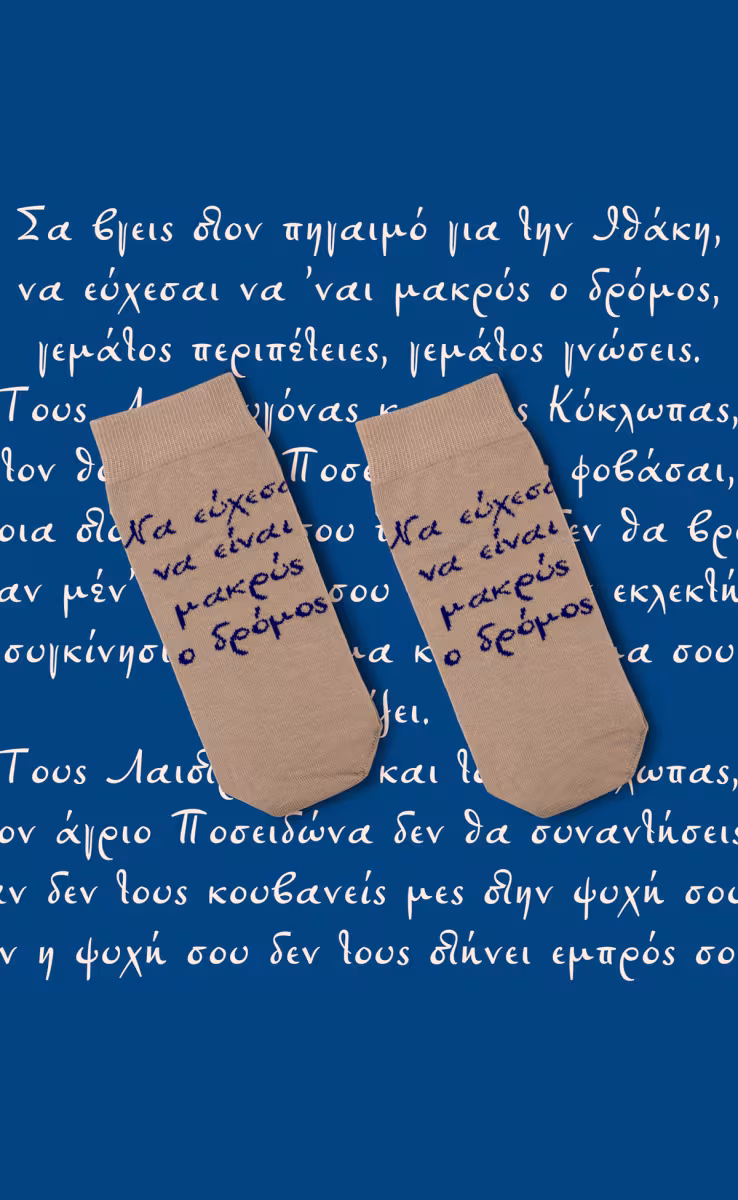 Σα βγεις στον πηγαιμό για την Ιθάκη,
να εύχεσαι να 'ναι μακρύς ο δρόμος,
γεμάτος περιπέτειες, γεμάτος γνώσεις.
Τους Κύκλωπας,
τον φοβάσαι,
θα
αν μέν' σου εκλεκτή
σου
Τους και
άγριο Ποσειδώνα δεν θα συναντήσεις
δεν τους κουβανείς μες στην ψυχή σου
η ψυχή σου δεν τους στήνει εμπρός
Να εύχεσα
να είναι
μακρύς
ο δρόμος
Να εύχεσα
να είναι
μακρύς
ο δρόμος